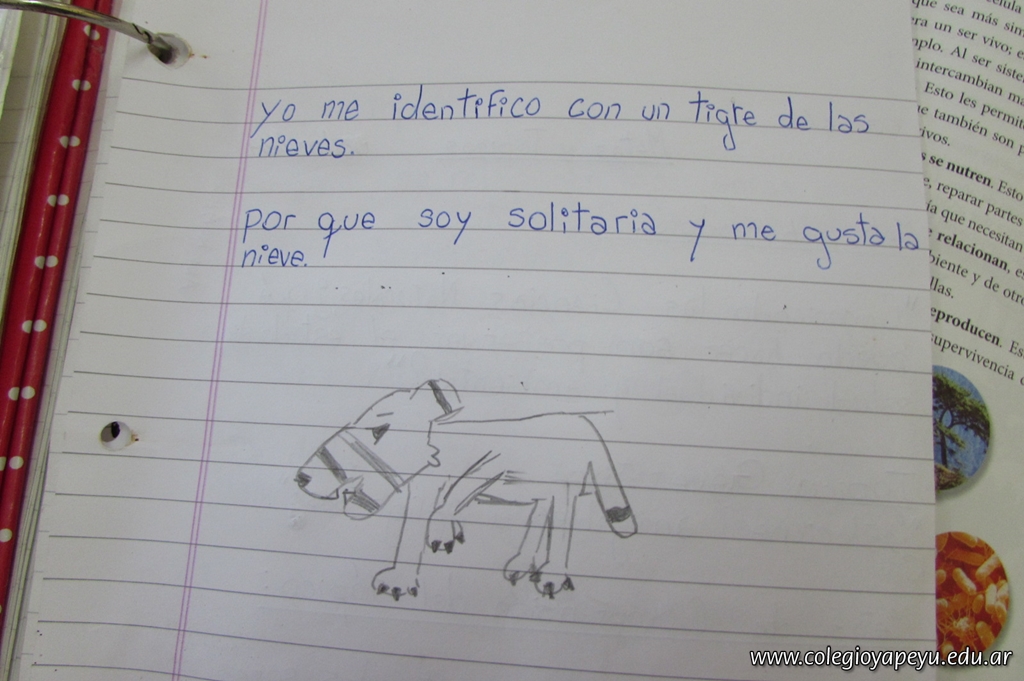 yo me identifico con un tigre de las
nieves.
por que soy solitaria y me gusta la
nieve.
que sea más sim
era un ser vivo, e
Al ser siste
intercambian ma
Esto les permit
también son p
ivos.
se nutren. Esto
reparar partes
ía que necesitan
relacionan, e
biente y de otro
llas.
eproducen. Es
supervivencia
www.colegioyapeyu.edu.ar